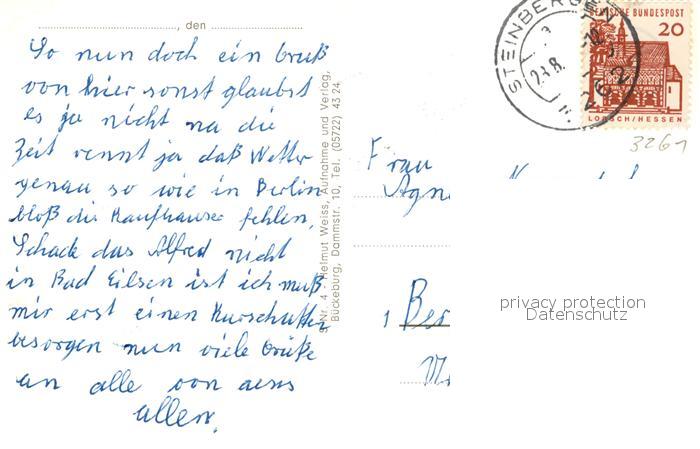 , den
So nun doch ein Gruß
von hier sonst glaubst
es ja nicht na die
Zeit rennt ja daß Wetter
genau so wie in Berlin
bloß die Kaufhäuser fehlen
Schade das Alfred nicht
in Bad Eilsen ist ich muß
mir erst einen Kurschatten
besorgen nun viele Grüße
an alle von uns
allen.
Nr. 4 - Helmut Weiss, Aufnahme und Verlag,
Bückeburg, Dammstr. 10, Tel. (05722) 43 24
STEINBERGEN
23.8.
DEUTSCHE BUNDESPOST
20
LORSCH/HESSEN
3261
Frau
Agne
1 Ber
privacy protection
Datenschutz